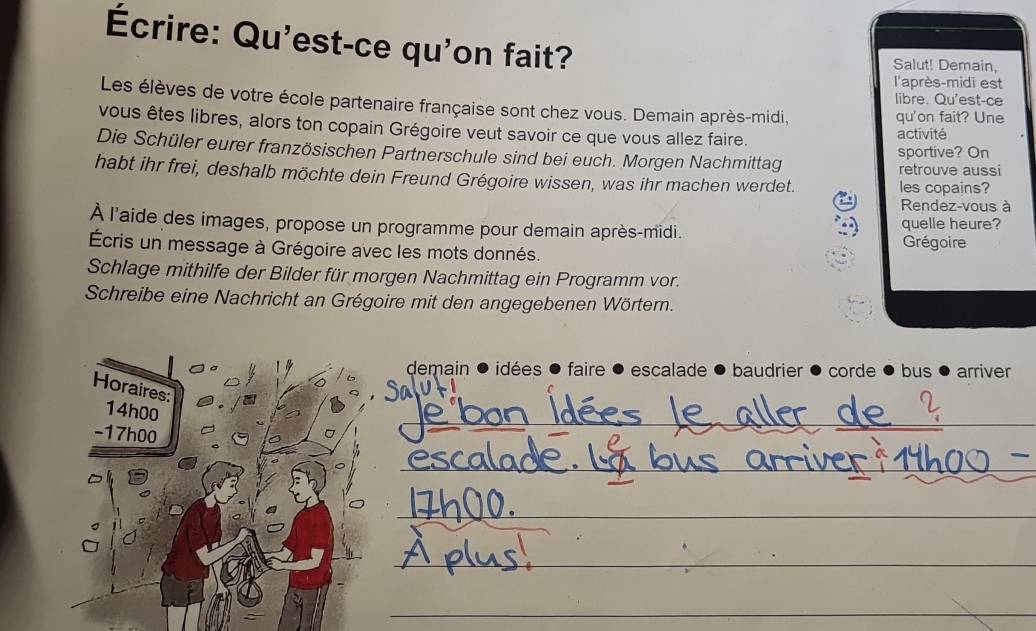 Écrire: Qu'est-ce qu'on fait?
Les élèves de votre école partenaire française sont chez vous. Demain après-midi,
vous êtes libres, alors ton copain Grégoire veut savoir ce que vous allez faire.
Die Schüler eurer französischen Partnerschule sind bei euch. Morgen Nachmittag
habt ihr frei, deshalb möchte dein Freund Grégoire wissen, was ihr machen werdet.
À l'aide des images, propose un programme pour demain après-midi.
Écris un message à Grégoire avec les mots donnés.
Schlage mithilfe der Bilder für morgen Nachmittag ein Programm vor.
Schreibe eine Nachricht an Grégoire mit den angegebenen Wörtern.
Salut! Demain,
l'après-midi est
libre. Qu'est-ce
qu'on fait? Une
activité
sportive? On
retrouve aussi
les copains?
Rendez-vous à
quelle heure?
Grégoire
Horaires:
14h00
-17h00
demain ● idées ● faire ● escalade ● baudrier ● corde ● bus ● arriver
Salut!
Je bon idées le aller de ?
escalade. Le bus arriver à 14h00 -
17h00.
À plus!